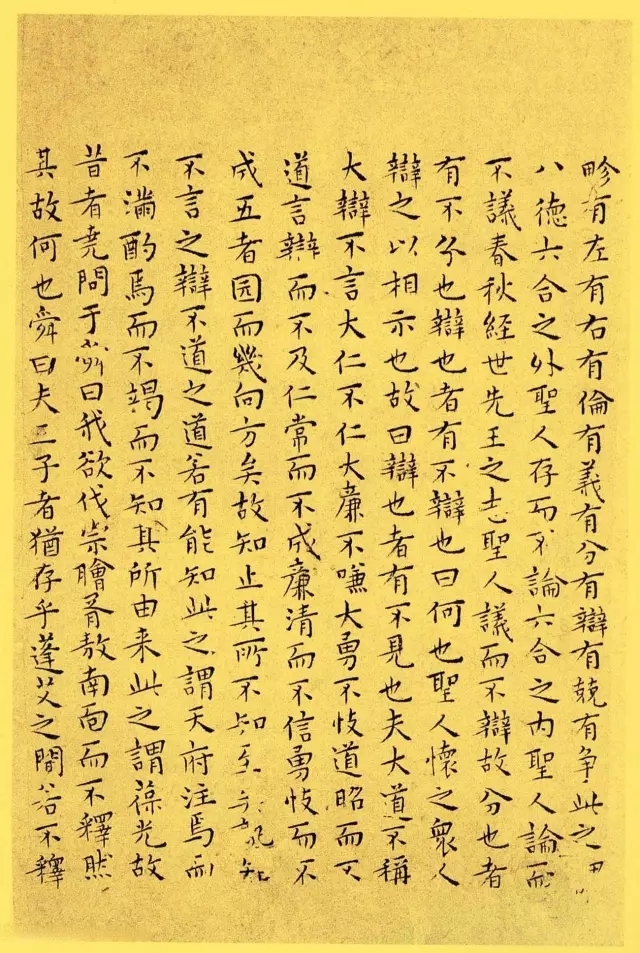 畛有左有右有倫有義有分有辯有競有争此之
八德六合之外聖人存而不論六合之内聖人論而
不議春秋經世先王之志聖人議而不辯故分也者
有不分也辯也者有不辯也曰何也聖人懷之衆人
辯之以相示也故曰辯也者有不見也夫大道不稱
大辯不言大仁不仁大廉不嗛大勇不忮道昭而不
道言辯而不及仁常而不成廉清而不信勇忮而不
成五者园而幾向方矣故知止其所不知至知
不言之辯不道之道若有能知此之謂天府注焉而
不滿酌焉而不竭而不知其所由来此之謂葆光故
昔者堯問于舜曰我欲伐宗膾胥敖南面而不釋然
其故何也舜曰夫三子者猶存乎蓬艾之間若不釋